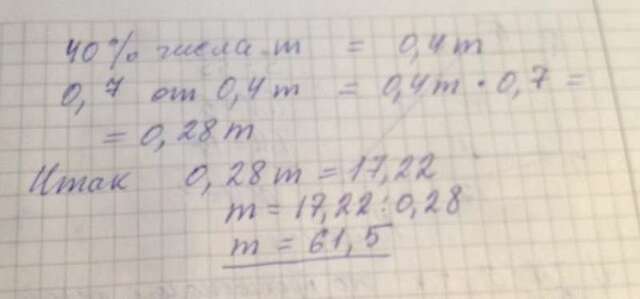 40% числа m = 0,4m
0,7 от 0,4m = 0,4m · 0,7 =
= 0,28m
Итак 0,28m = 17,22
m = 17,22 : 0,28
m = 61,5